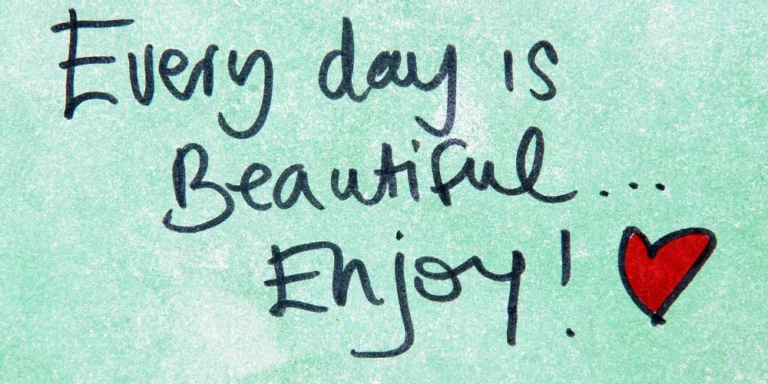 Every day is
Beautiful...
Enjoy!